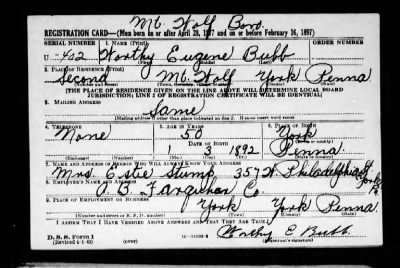 Mt. Wolf Boro.
REGISTRATION CARD—(Men born on or after April 28, 1877 and on or before February 16, 1897)
SERIAL NUMBER 1. NAME (Print) ORDER NUMBER
U 402 Worthy Eugene Bubb
2. PLACE OF RESIDENCE (Print)
Second Mt. Wolf York Penna
[THE PLACE OF RESIDENCE GIVEN ON THE LINE ABOVE WILL DETERMINE LOCAL BOARD
JURISDICTION; LINE 2 OF REGISTRATION CERTIFICATE WILL BE IDENTICAL]
3. MAILING ADDRESS
Same
[Mailing address if other than place indicated on line 2. If same insert word same]
4. TELEPHONE 5. AGE IN YEARS 6. PLACE OF BIRTH
None 50 York
DATE OF BIRTH
1 3 1892 Penna.
(Exchange) (Number) (Mo.) (Day) (Yr.) (State or country)
7. NAME AND ADDRESS OF PERSON WHO WILL ALWAYS KNOW YOUR ADDRESS
Mrs. Estie Stump, 357 W. Philadelphia St
York Pa
8. EMPLOYER'S NAME AND ADDRESS
A. B. Farquhar Co.
9. PLACE OF EMPLOYMENT OR BUSINESS
York York Penna.
(Number and street or R. F. D. number) (Town) (County) (State)
I AFFIRM THAT I HAVE VERIFIED ABOVE ANSWERS AND THAT THEY ARE TRUE.
D. S. S. Form 1
(Revised 4-1-42) (over) Worthy E Bubb